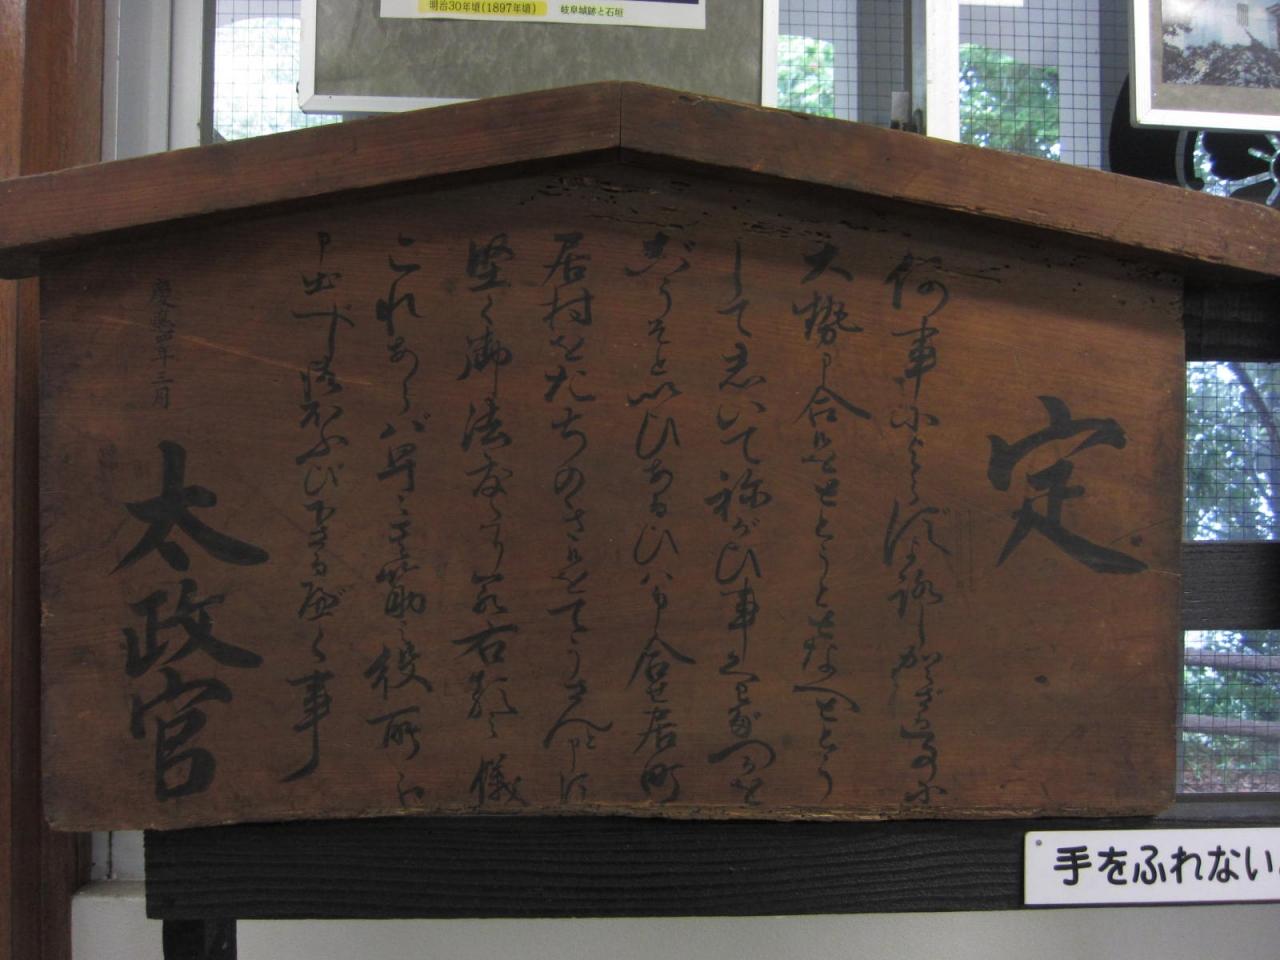 明治30年頃(1897年頃)
岐阜城跡と石垣
定
何事によらずよろしからざる事に
大勢申合候をととうととなへととう
して志いて祢がひ事くわだつるを
ごうそといひあるひハ申合せ居町
居村をたちのき候をてうさんと申す
堅く御法度たり若右類之儀
これあらバ早々其筋之役所へ
申出べし御ほふび下さるべく事
慶應四年三月
太政官
手をふれない